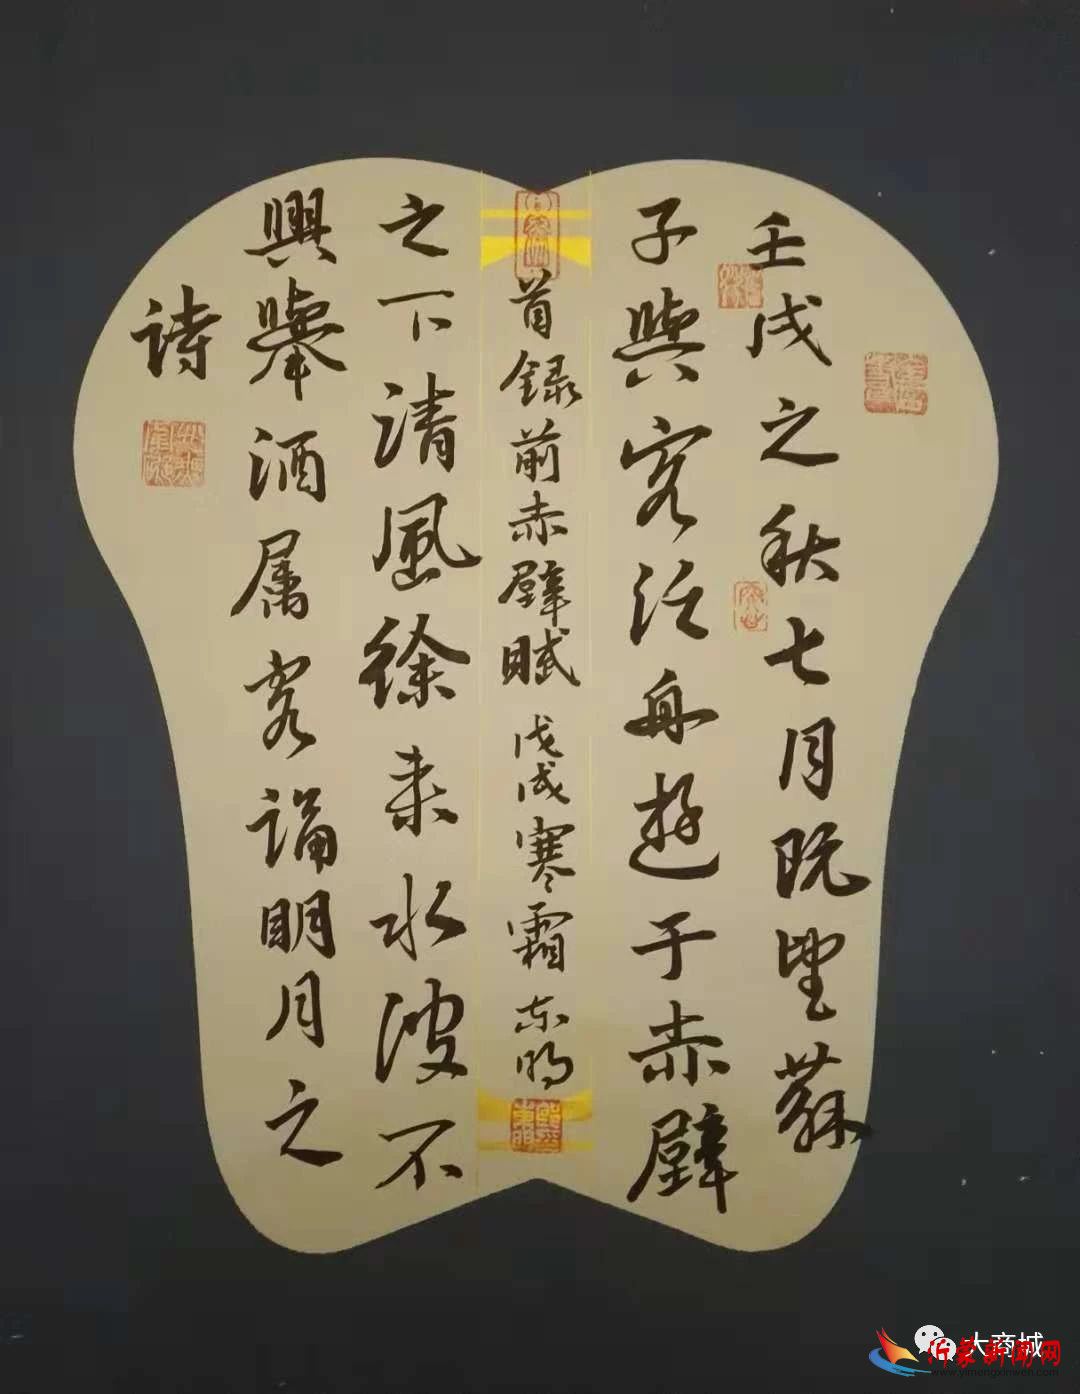 壬戌之秋七月既望蘇
子與客泛舟遊于赤壁
首録前赤壁賦 戊戌寒霜 东明
之下清風徐来水波不
興舉酒属客誦明月之
诗
大商城
沂蒙新闻网
www.yimengxinwen.com